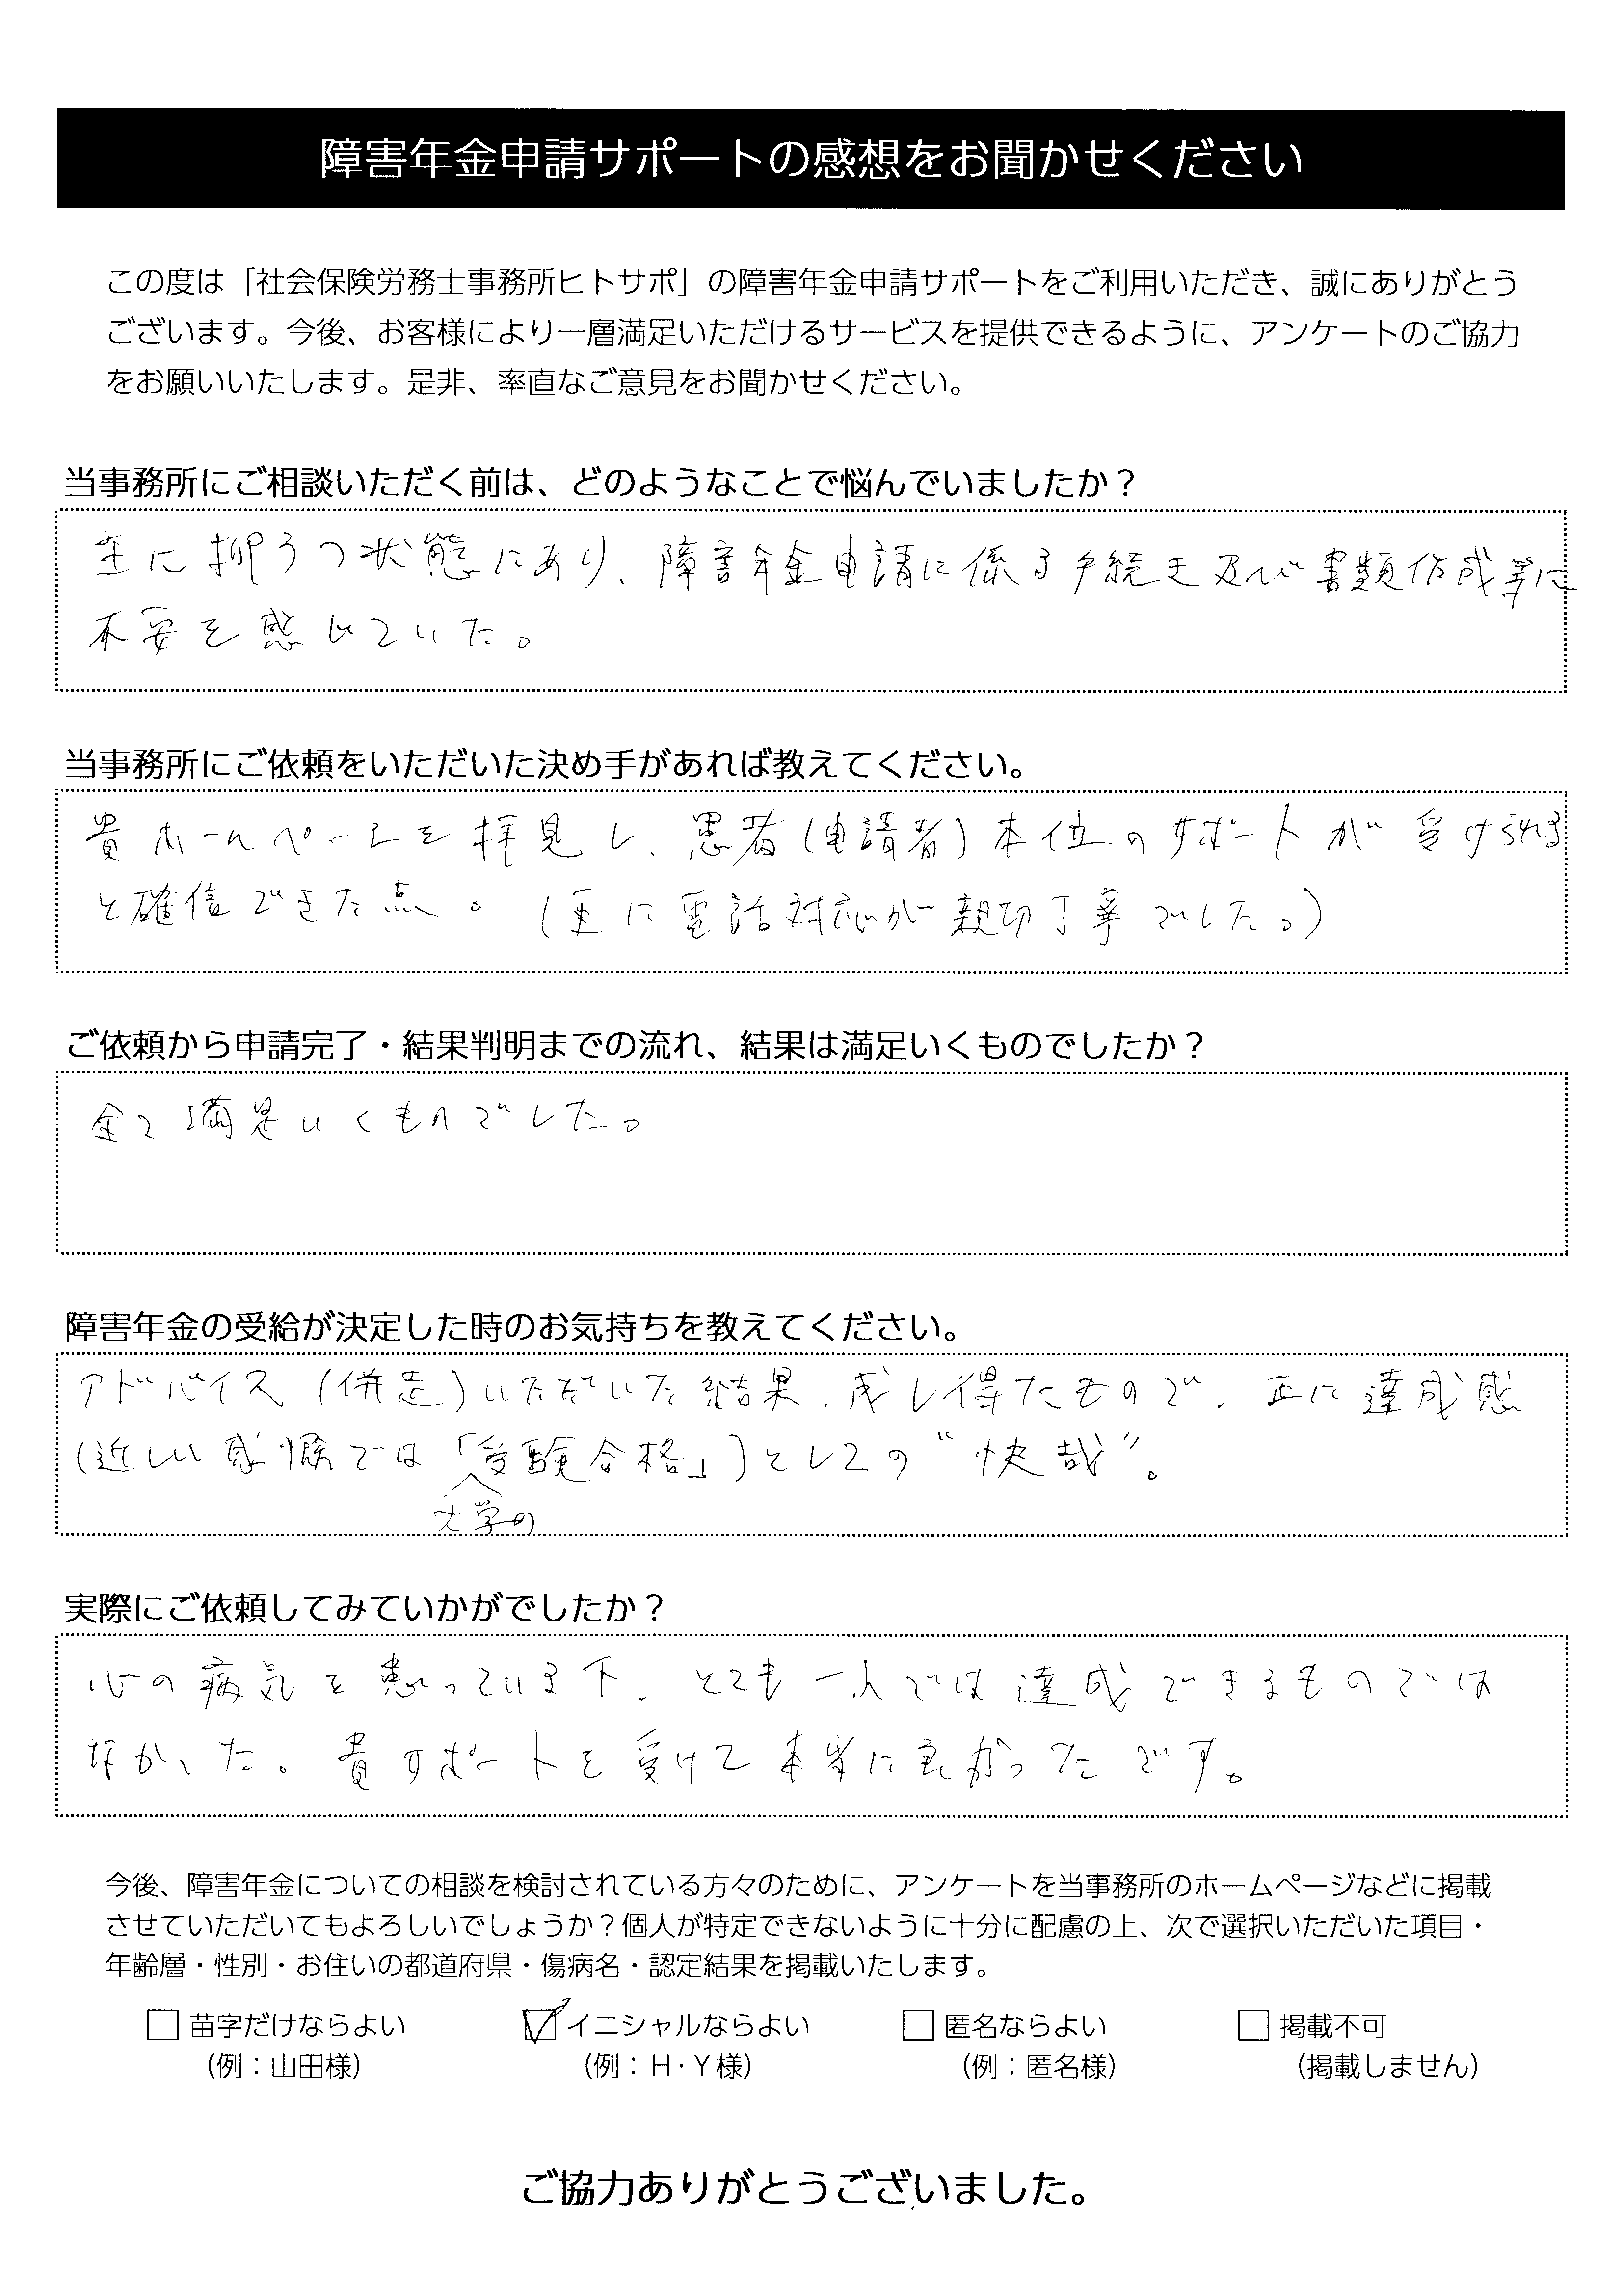 障害年金申請サポートの感想をお聞かせください
この度は「社会保険労務士事務所ヒトサポ」の障害年金申請サポートをご利用いただき、誠にありがとう
ございます。今後、お客様により一層満足いただけるサービスを提供できるように、アンケートのご協力
をお願いいたします。是非、率直なご意見をお聞かせください。
当事務所にご相談いただく前は、どのようなことで悩んでいましたか？
主に抑うつ状態にあり、障害年金申請に係る手続き及び書類作成等に
不安を感じていた。
当事務所にご依頼をいただいた決め手があれば教えてください。
貴ホームページを拝見し、患者(申請者)本位のサポートが受けられる
と確信できた点。(更に電話対応が親切丁寧でした。)
ご依頼から申請完了・結果判明までの流れ、結果は満足いくものでしたか？
全て満足いくものでした。
障害年金の受給が決定した時のお気持ちを教えてください。
アドバイス(併走)いただいた結果、成し得たもので、正に達成感
(近しい感慨では「受験合格」)としての"快哉"。
大学の
実際にご依頼してみていかがでしたか？
心の病気を患っている下、とても一人では達成できるものでは
なかった。貴サポートを受けて本当に良かったです。
今後、障害年金についての相談を検討されている方々のために、アンケートを当事務所のホームページなどに掲載
させていただいてもよろしいでしょうか？個人が特定できないように十分に配慮の上、次で選択いただいた項目・
年齢層・性別・お住いの都道府県・傷病名・認定結果を掲載いたします。
苗字だけならよい イニシャルならよい 匿名ならよい 掲載不可
（例：山田様） （例：H・Y様） （例：匿名様） （掲載しません）
ご協力ありがとうございました。